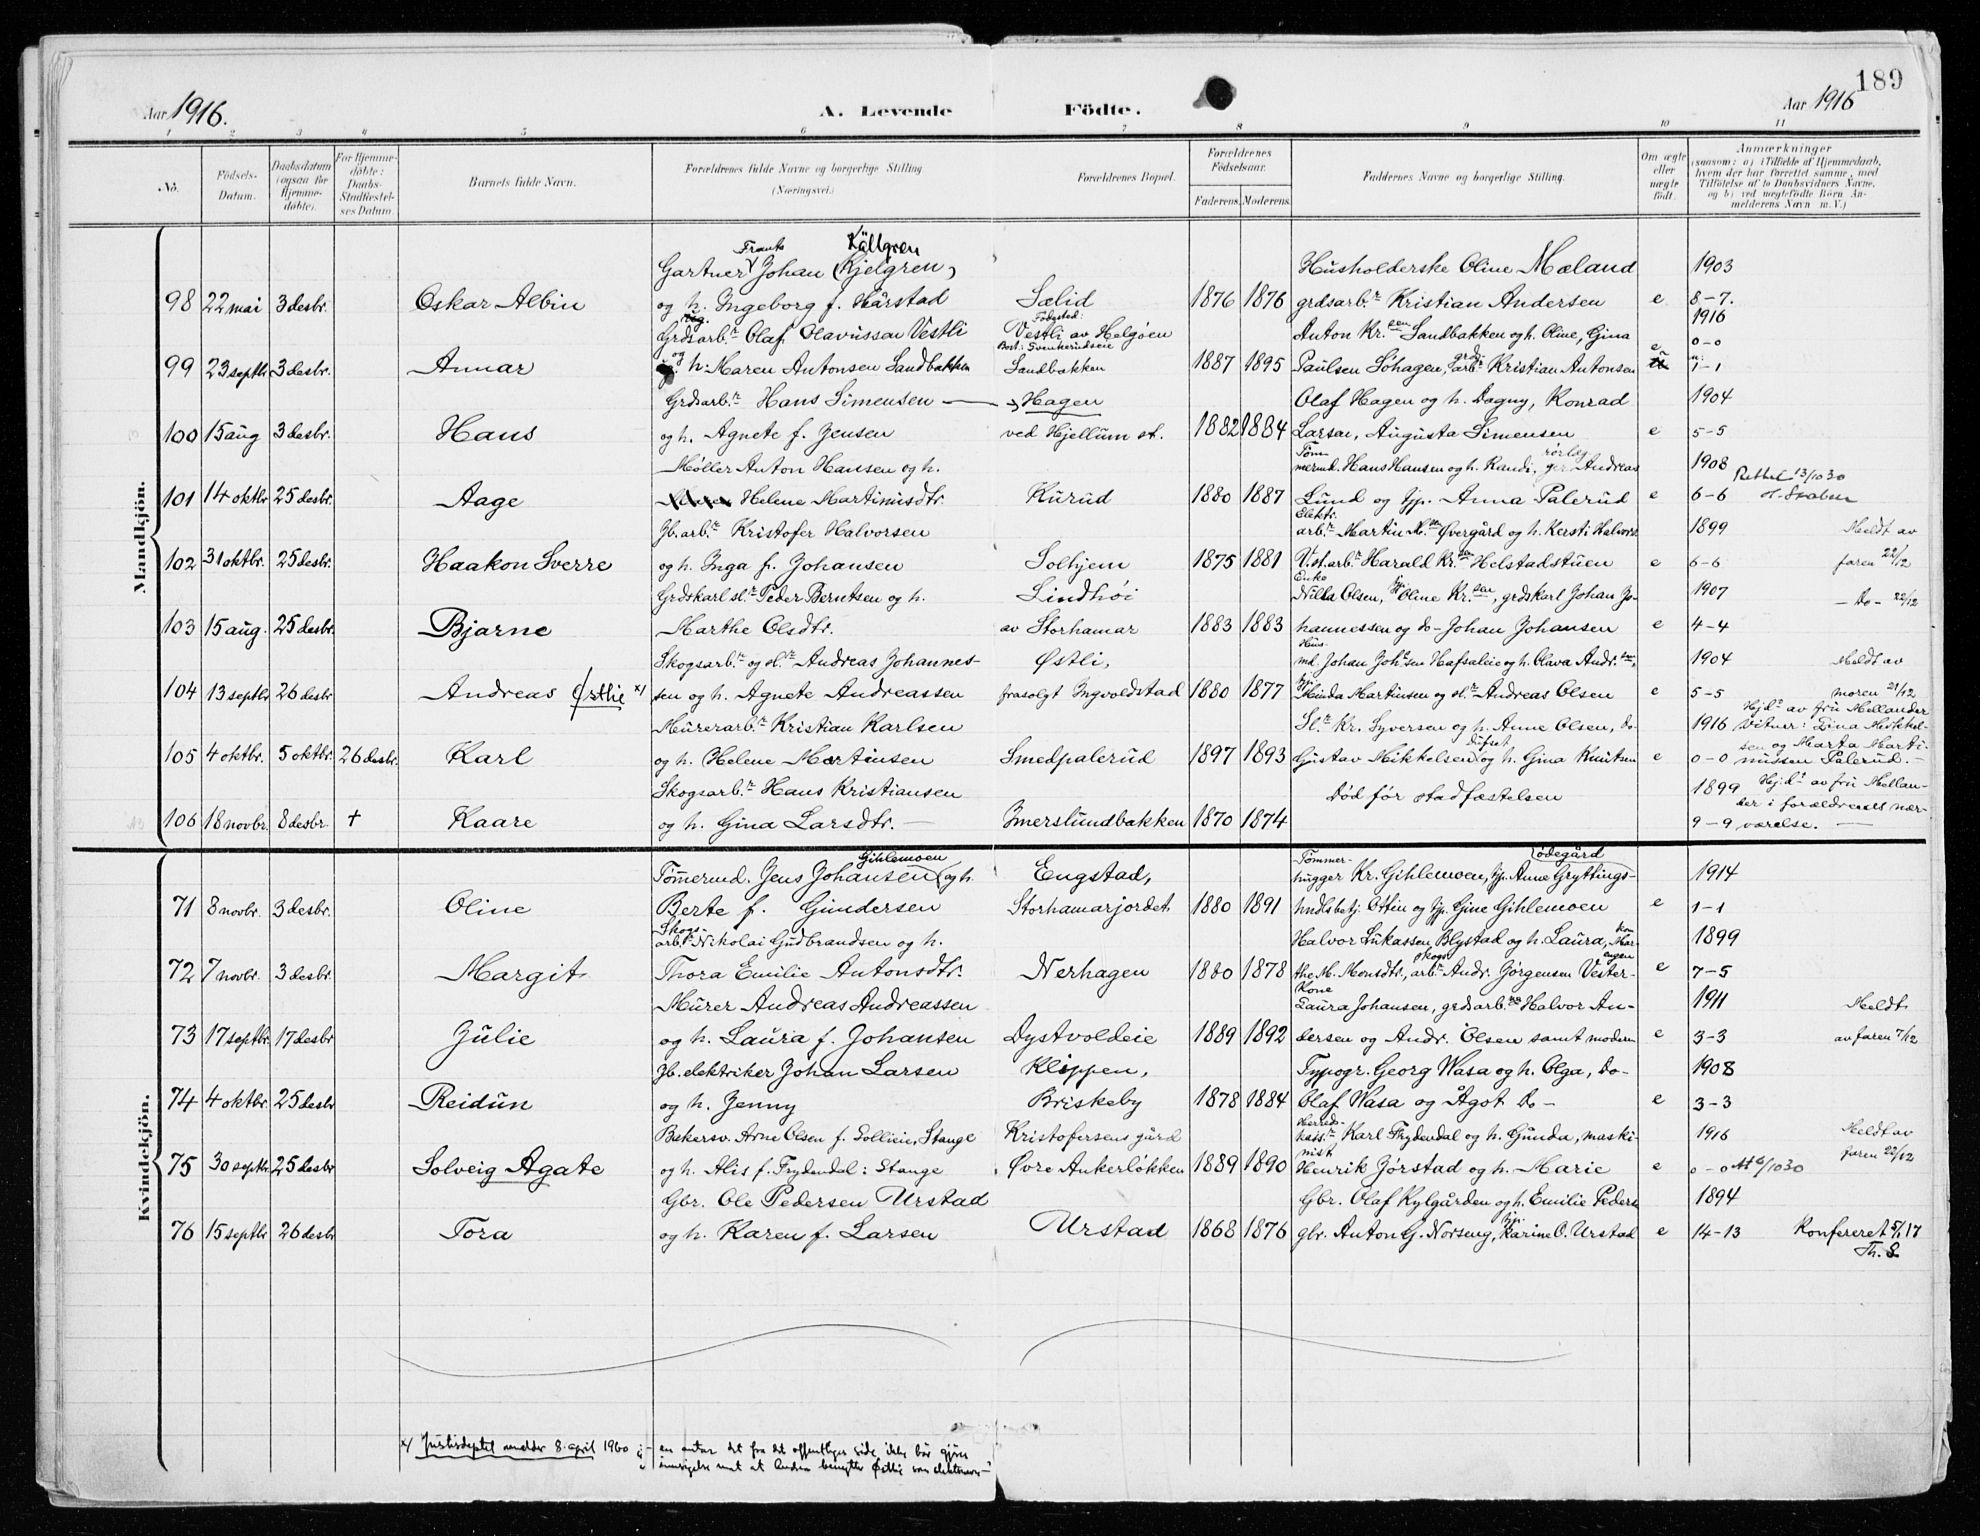 189
Aar 1916.
A. Levende Födte.
Aar 1916
1 2 3 4 5 6 7 8 9 10 11
No.
Födsels-Datum.
Daabsdatum (ogsaa for Hjemme-döbte).
For Hjemme-döbte: Daabs-Stadfæstel-ses Datum
Barnets fulde Navn.
Forældrenes fulde Navne og borgerlige Stilling (Næringsvei.)
Forældrenes Bopæl.
Forældrenes Födselsaar.
Faderens. Moderens.
Faddernes Navne og borgerlige Stilling.
Om ægte eller uægte födt.
Anmærkninger
(saasom: a) i Tilfælde af Hjemmedaab,
hvem der har forrettet samme, med
Tilföielse af to Daabsvidners Navne,
og b) ved uægtefödte Börn An-
melderens Navn m. V.)
Mandkjön.
Frants Källgren
Gartner Johan (Kjelgren) Husholderske Oline Mæland 1903
98 22 mai 3 desbr. Oskar Albin og h. Ingeborg f. Hårstad Sælid 1876 1876 grdsarb.r Kristian Andersen e 8-7.
Fødested: 1916
Grdsarb.r Olaf Olavussan Vestli Vestli av Helgøen Anton Kr.sen Sandbakken og h. Oline, Gina 0-0
Bost: Svenkerudseie
99 23 septbr 3 desbr. Annar og h: Maren Antonsen Sandbakken Sandbakken 1887 1895 Paulsen Sohagen, grdsarb.r Kristian Antonsen e 1-1
Grdsarb.r Hans Simensen — Hagen Olaf Hagen og h. Dagny, Konrad 1904
100 15 aug 3 desbr. Hans og h. Agnete f. Jensen ved Hjellum st. 1882 1884 Larsen, Augusta Simensen e 5-5
Møller Anton Hansen og h. Tømmermd. Hans Hansen og h. Randi, rørlæg Andreas 1908
101 14 oktbr 25 desbr. Aage Helene Martinusdtr. Kurud 1880 1887 Lund og pp. Anna Palerud e 6-6
13/10 30
Jb.arb.r Kristofer Halvorsen Elektr. arb.r Martin Øvergård og h. Kersti Halvors 1899 Meldt av
102 31 oktbr. 25 desbr. Haakon Sverre og h. Inga f. Johansen Solhjem 1875 1881 V.st.arb.r Harald Kr.sen Helstadstuen e 6-6 faren 22/12
Grdskarl sl.r Peder Berntsen og h. Lindhøi Enke Nilla Olsen, pp. Oline Kr.sen, grdskarl Johan Jo- 1907 — Do — 22/12
103 15 aug. 25 desbr. Bjarne Marthe Olsdtr. av Storhamar 1883 1883 hannessen og do - Johan Johansen e 4-4
Skogsarb.r og sl.r Andreas Johannes- Østli, Husmd. Johan Joh.sen Hafsaleie og h. Olava Andr.sen, 1904 Meldt av
104 13 septbr 26 desbr Andreas Østlie x) sen og h. Agnete Andreassen frasolgt Ingvoldstad 1880 1877 pp. Minda Martinsen og sl.r Andreas Olsen e 5-5 moren 21/12
Murerarb.r Kristian Karlsen Sl.r Kr. Syversen og h. Anne Olsen, Do 1916
Hj.d. av fru Mellander
Vitner: Lina Mikkel-
105 4 oktbr. 5 oktbr. 26 desbr. Karl og h. Helene Martinsen Smedpalerud 1897 1893 Gustav Mikkelsen Dufset og h. Gina Knutsen e 0-0
sen og Marta Marti-
nussen Palerud.—
Skogsarb.r Hans Kristiansen Død før stadfæstelsen 1899 Hj.d. av fru Mellan-
106 18 novbr. 8 desbr. + Kaare og h. Gina Larsdtr. — Imerslundbakken 1870 1874 9-9
der i forældrenes nær-
værelse. —
Kvindekjön.
Gihlemoen
Tømermd. Jens Johansen og h. Engstad, Tømmerhugger Kr. Gihlemoen, pp. Anne Gryttings-ødegård 1914
71 8 novbr. 3 desbr. Oline Berte f. Gundersen Storhamarjordet 1880 1891 hndlsbetj. Ottin og pp. Gine Gihlemoen e 1-1
Skogsarb.r Nikolai Gudbrandsen og h. Halvor Lukassen Blystad og h. Laura, kon Mar- 1899
72 7 novbr. 3 desbr. Margit Thora Emilie Antonsdtr. Nerhagen 1880 1878 the M. Monsdtr., skogsarb.r Andr. Jørgensen Vester-engen e 7-5
Murer Andreas Andreassen Kone Laura Johansen, grdsarb. Halvor An- 1911 Meldt
73 17 septbr. 17 desbr Julie og h. Laura f. Johansen Dystvoldeie 1889 1892 dersen og Andr. Olsen samt modern e 3-3 av faren 7/12
Jb.elektriker Johan Larsen Klippen, Typogr. Georg Wasa og h. Olga, Do- 1908
74 4 oktbr. 25 desbr Reidun og h. Jenny Briskeby 1878 1884 Olaf Wasa og Ågot Do - e 3-3
Bekersv. Arne Olsen f. Sollieie, Stange Kristofersens gård Herredskass.r Karl Frydendal og h. Gunda, maski- 1916 Meldt av
75 30 septbr 25 desbr Solveig Agate og h. Alis f. Frydendal: Stange Øvre Ankerløkken 1889 1890 nist Henrik Jørstad og h. Marie e 0-0 6/10 30 faren 22/12
Gbr. Ole Pedersen Urstad Gbr. Olaf Kylgården og h. Emilie Peders 1894
76 15 septbr 26 desbr Tora og h. Karen f. Larsen Urstad 1868 1876 gbr. Anton G. Norseng, pp. Karine O. Urstad e 14-13 Konfereret 5/1 17
Th. S.
x) Justisdeptet melder 8. april 1960: — en antar det fra det offentliges side ikke bør gjøres
innsigelse mot at Andreas benytter Østlie som slektsnavn —